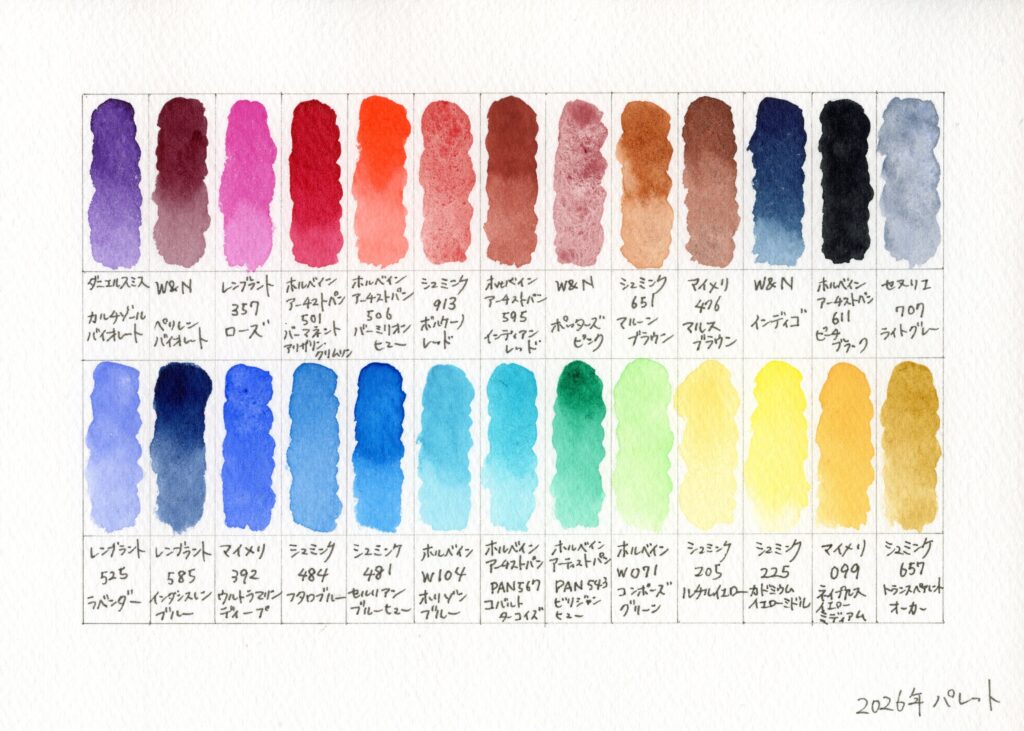 ダニエルスミス
カルバゾール
バイオレット
W&N
ペリレン
バイオレット
レンブラント
357
ローズ
ホルベイン
アーチストパン
501
パーマネント
アリザリン
クリムソン
ホルベイン
アーチストパン
506
バーミリオン
ヒュー
シュミンク
913
ボルケーノ
レッド
ホルベイン
アーチストパン
595
インディアン
レッド
W&N
ポッターズ
ピンク
シュミンク
651
マルーン
ブラウン
マイメリ
476
マルス
ブラウン
W&N
インディゴ
ホルベイン
アーチストパン
611
ピーチ
ブラック
セヌリエ
707
ライトグレー
レンブラント
525
ラベンダー
レンブラント
585
インダンスレン
ブルー
マイメリ
392
ウルトラマリン
ディープ
シュミンク
484
フタロブルー
シュミンケ
481
セルリアン
ブルーヒュー
ホルベイン
W104
ホリゾン
ブルー
ホルベイン
アーチストパン
PAN567
コバルト
ターコイズ
ホルベイン
アーティストパン
PAN543
ビリジャン
ヒュー
ホルベイン
W071
コンポーズ
グリーン
シュミンク
205
ルチルイエロー
シュミンク
225
カドミウム
イエローミドル
マイメリ
099
ネイプルス
イエロー
ミディアム
シュミンク
657
トランスペアレント
オーカー
2026年パレット